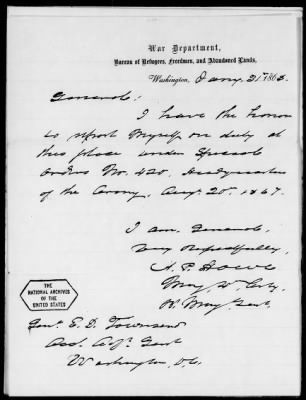 War Department,
Bureau of Refugees, Freedmen, and Abandoned Lands,
Washington, Jany. 21st 1868.
General:
I have the honor
to report myself on duty at
this place under Special
Orders No. 420. Headquarters
of the Army, Augt. 20. 1867.
I am General,
Very Respectfully,
A. P. Howe
Maj. 4" Arty.
Bt. Maj. Genl.
THE
NATIONAL ARCHIVES
OF THE
UNITED STATES
Genl. E. D. Townsend
Asst. Adjt. Genl
Washington, D.C.